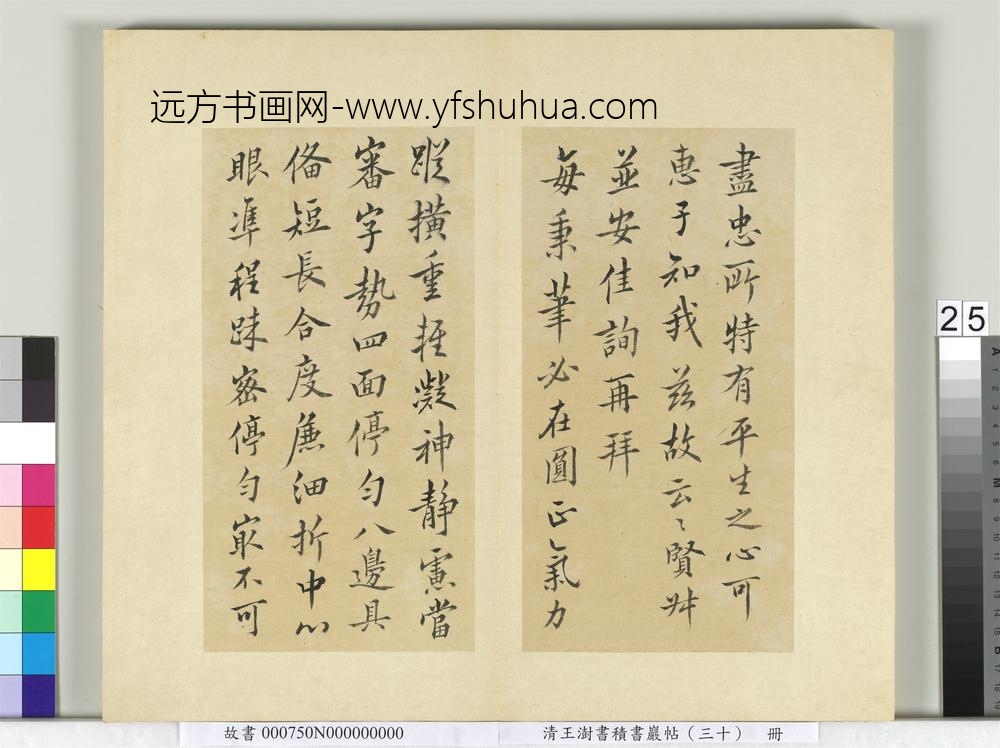 远方书画网-www.yfshuhua.com
盡忠所特有平生之心可
惠子知我茲故云〻賢弟
並安佳詢再拜
每秉筆必在圓正氣力
蹤橫重輕凝神靜慮當
審字勢四面停勻八邊具
俻短長合度麁細折中心
眼準程踈密停勻最不可
25
故書 000750N000000000
清王澍書積書巖帖（三十） 冊